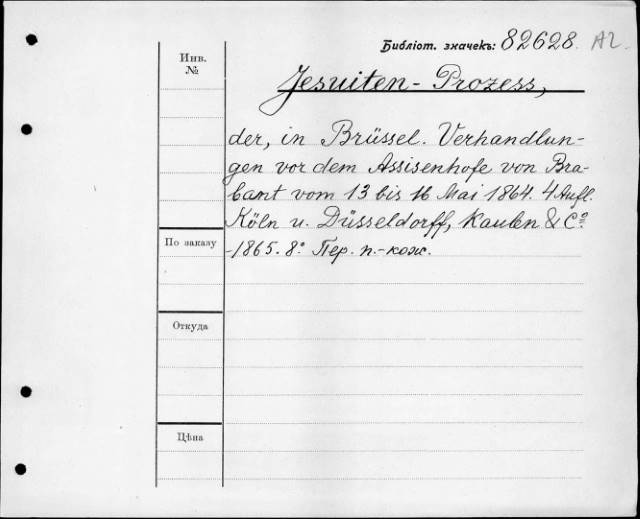 Библіот. значекъ: 82628. A2
Инв.
№
Jesuiten-Prozess,
der, in Brüssel. Verhandlun-
gen vor dem Assisenhofe von Bra-
bant vom 13 bis 16 Mai 1864. 4 Aufl.
Köln u. Düsseldorff, Kaulen & Cº
По заказу
-1865. 8.º Пер. п.-кож.
Откуда
Цѣна